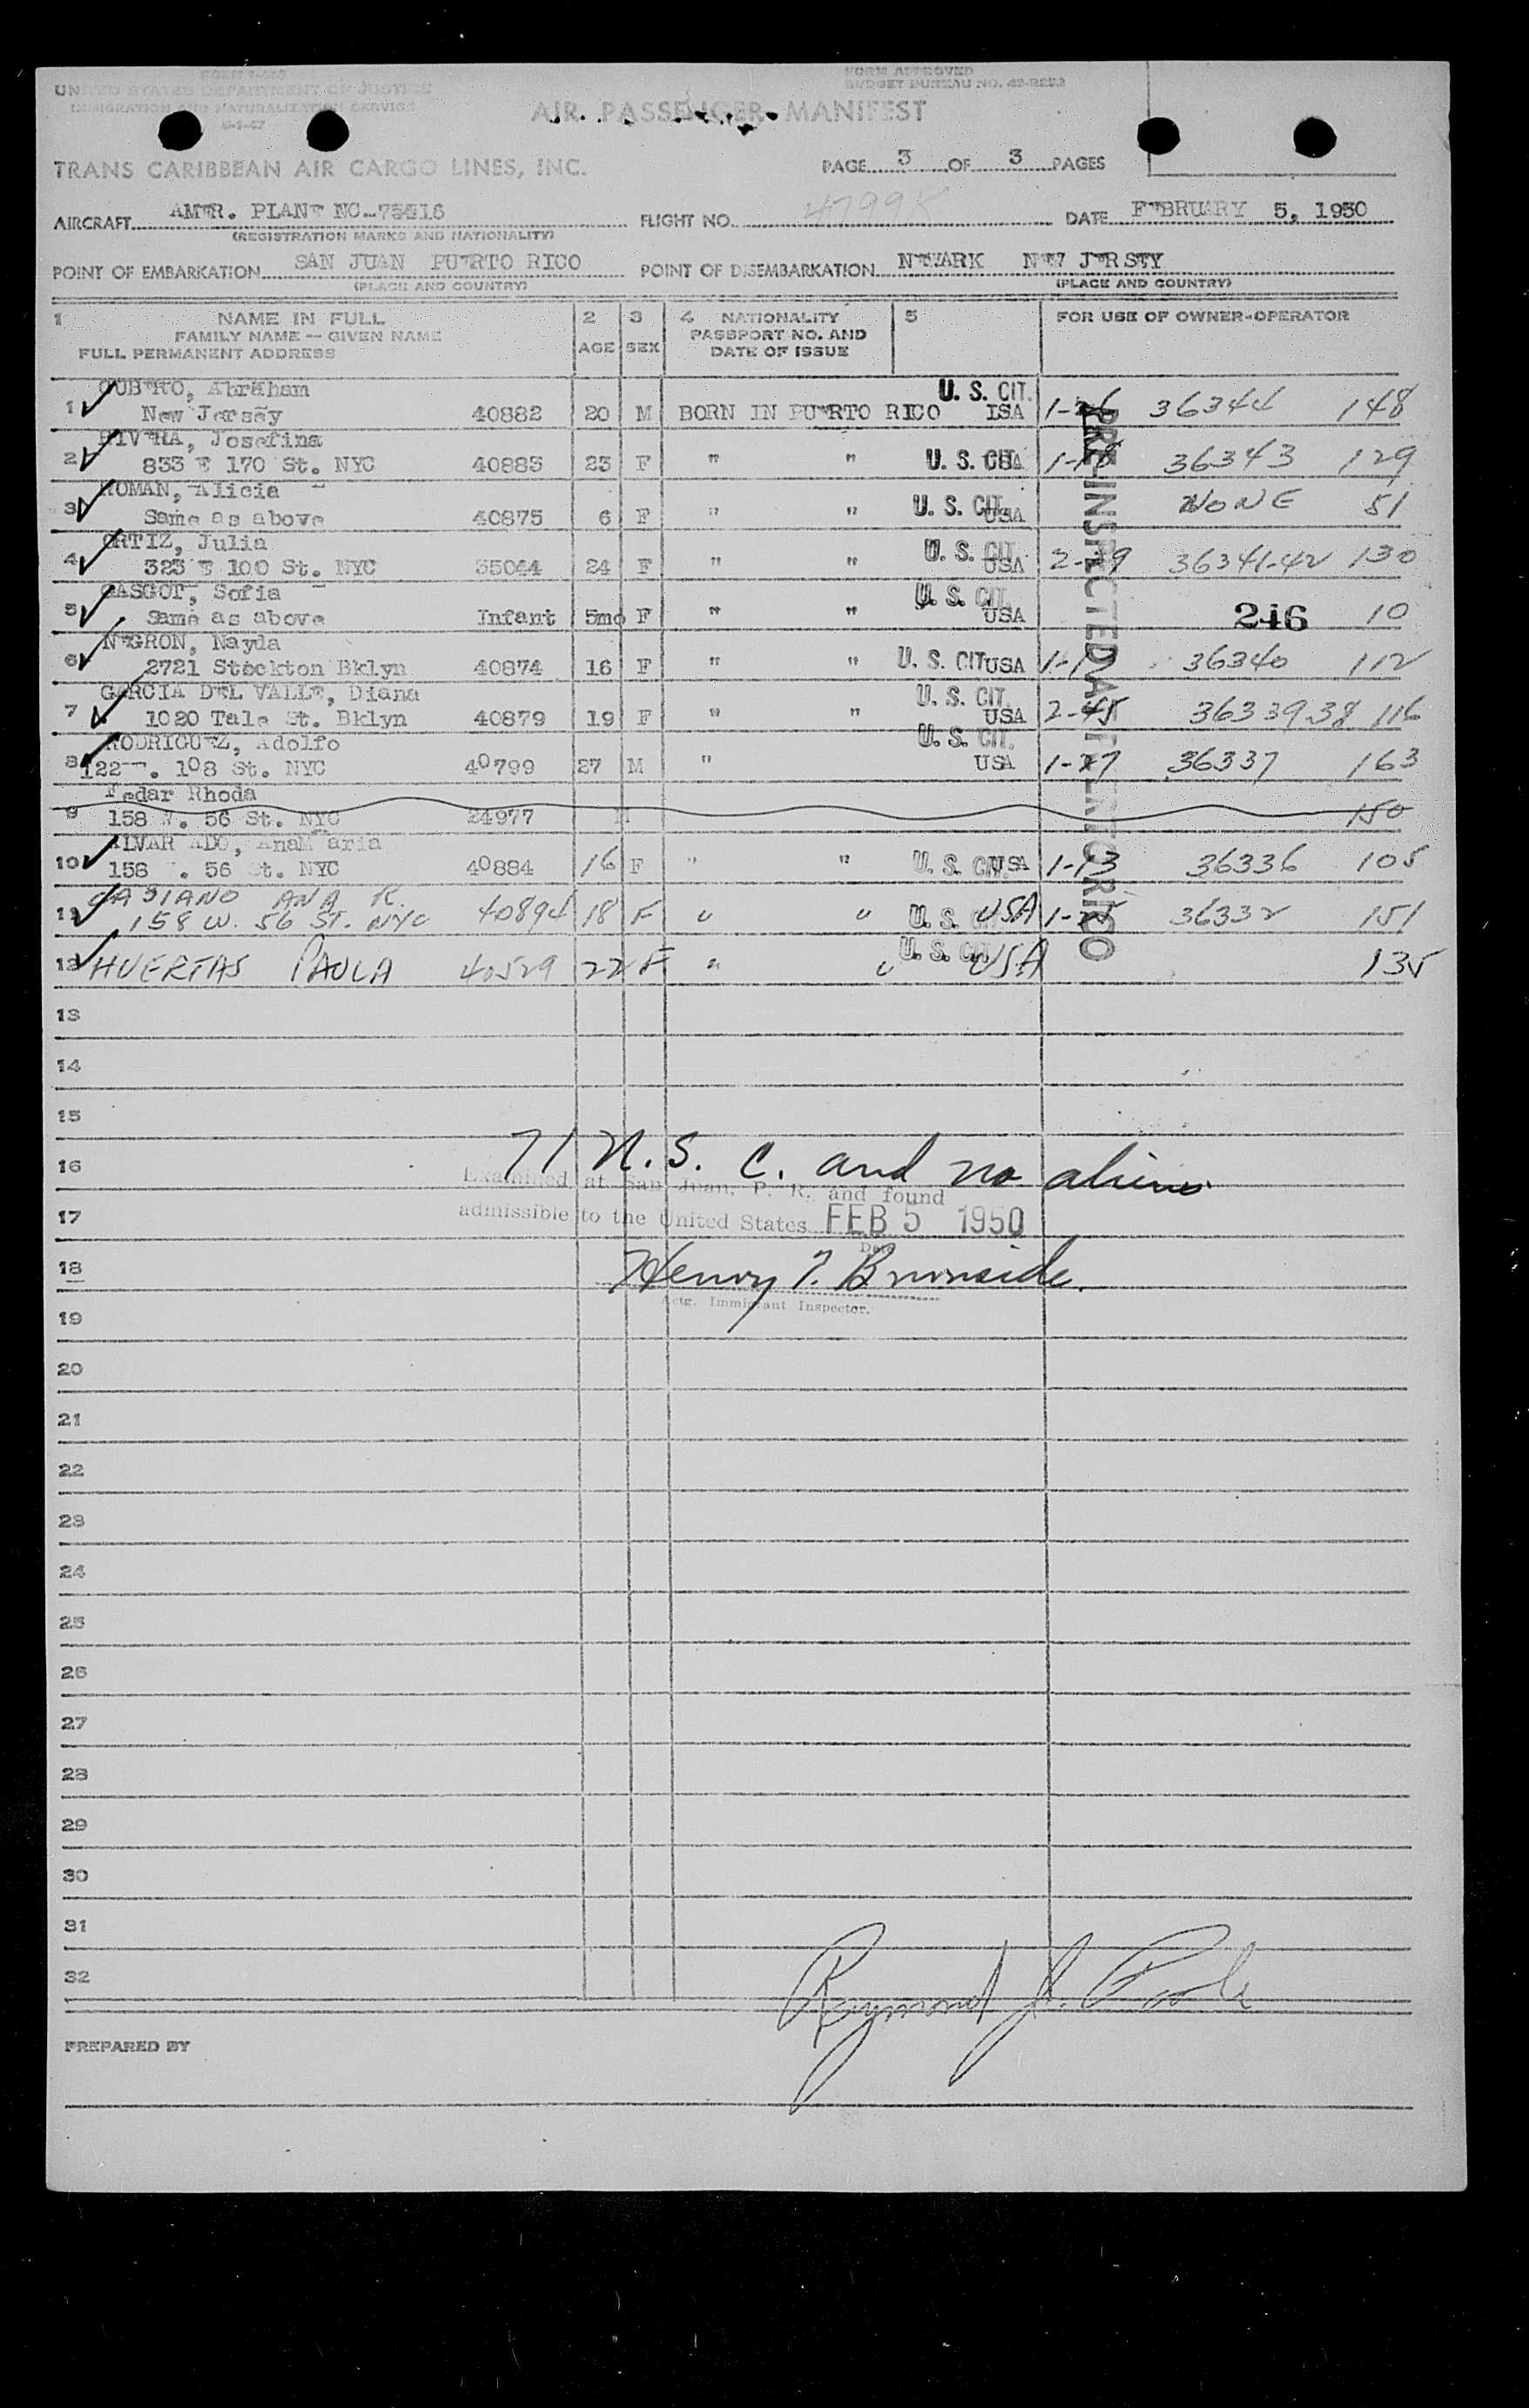 FORM I-483
UNITED STATES DEPARTMENT OF JUSTICE
IMMIGRATION AND NATURALIZATION SERVICE
FORM APPROVED
BUDGET BUREAU NO.
AIR PASSENGER MANIFEST
TRANS CARIBBEAN AIR CARGO LINES, INC.
PAGE 3 OF 3 PAGES
AIRCRAFT AMER. PLANE NO. FLIGHT NO. 4799K DATE FEBRUARY 5, 1950
(REGISTRATION MARKS AND NATIONALITY)
POINT OF EMBARKATION SAN JUAN PUERTO RICO POINT OF DISEMBARKATION NEWARK NEW JERSEY
(PLACE AND COUNTRY) (PLACE AND COUNTRY)
1 NAME IN FULL 2 3 4 NATIONALITY 5 FOR USE OF OWNER-OPERATOR
FAMILY NAME — GIVEN NAME PASSPORT NO. AND
FULL PERMANENT ADDRESS AGE SEX DATE OF ISSUE
Abraham U. S. CIT.
1 New Jersey 40882 20 M BORN IN PUERTO RICO 36344 148
RIVERA, Josefina
2 833 E 170 St. NYC 40883 23 F " " U. S. CIT. 36343 129
ROMAN, Alicia
3 Same as above 40875 6 F " " U. S. CIT. USA NONE 51
ORTIZ, Julia
4 323 E 100 St. NYC 35044 24 F " " U. S. CIT. USA 36341-42 130
GASGOT, Sofia
5 Same as above Infant 5mo F " " U. S. CIT. USA 246 10
NEGRON, Nayda
6 2721 Stockton Bklyn 40874 16 F " " U. S. CIT USA 36340 112
GARCIA DEL VALLE, Diana
7 1020 Tale St. Bklyn 40879 19 F " " U. S. CIT. USA 36339.38 116
RODRIGUEZ, Adolfo
8 122 . 108 St. NYC 40799 27 M " U. S. CIT. USA 36337 163
Rhoda
9 158 W. 56 St. NYC 24977 150
ALVARADO, AnaMaria
10 158 . 56 St. NYC 40884 16 F " " U. S. CIT. USA 1-13 36336 105
CASIANO ANA R.
11 158 W. 56 ST. NYC 40894 18 F " " U. S. CIT. USA 36332 151
12 HUERTAS PAULA 40529 22 F " " U. S. CIT. USA 135
PRE-INSPECTED AT PUERTO RICO
13
14
15
71 N.S. C. and no aliens
16
Examined at San Juan, P. R. and found
17 admissible to the United States FEB 5 1950
Date
18 Henry T. Burnside
Actg. Immigrant Inspector.
19
20
21
22
23
24
25
26
27
28
29
30
31
32
Raymond J.
PREPARED BY